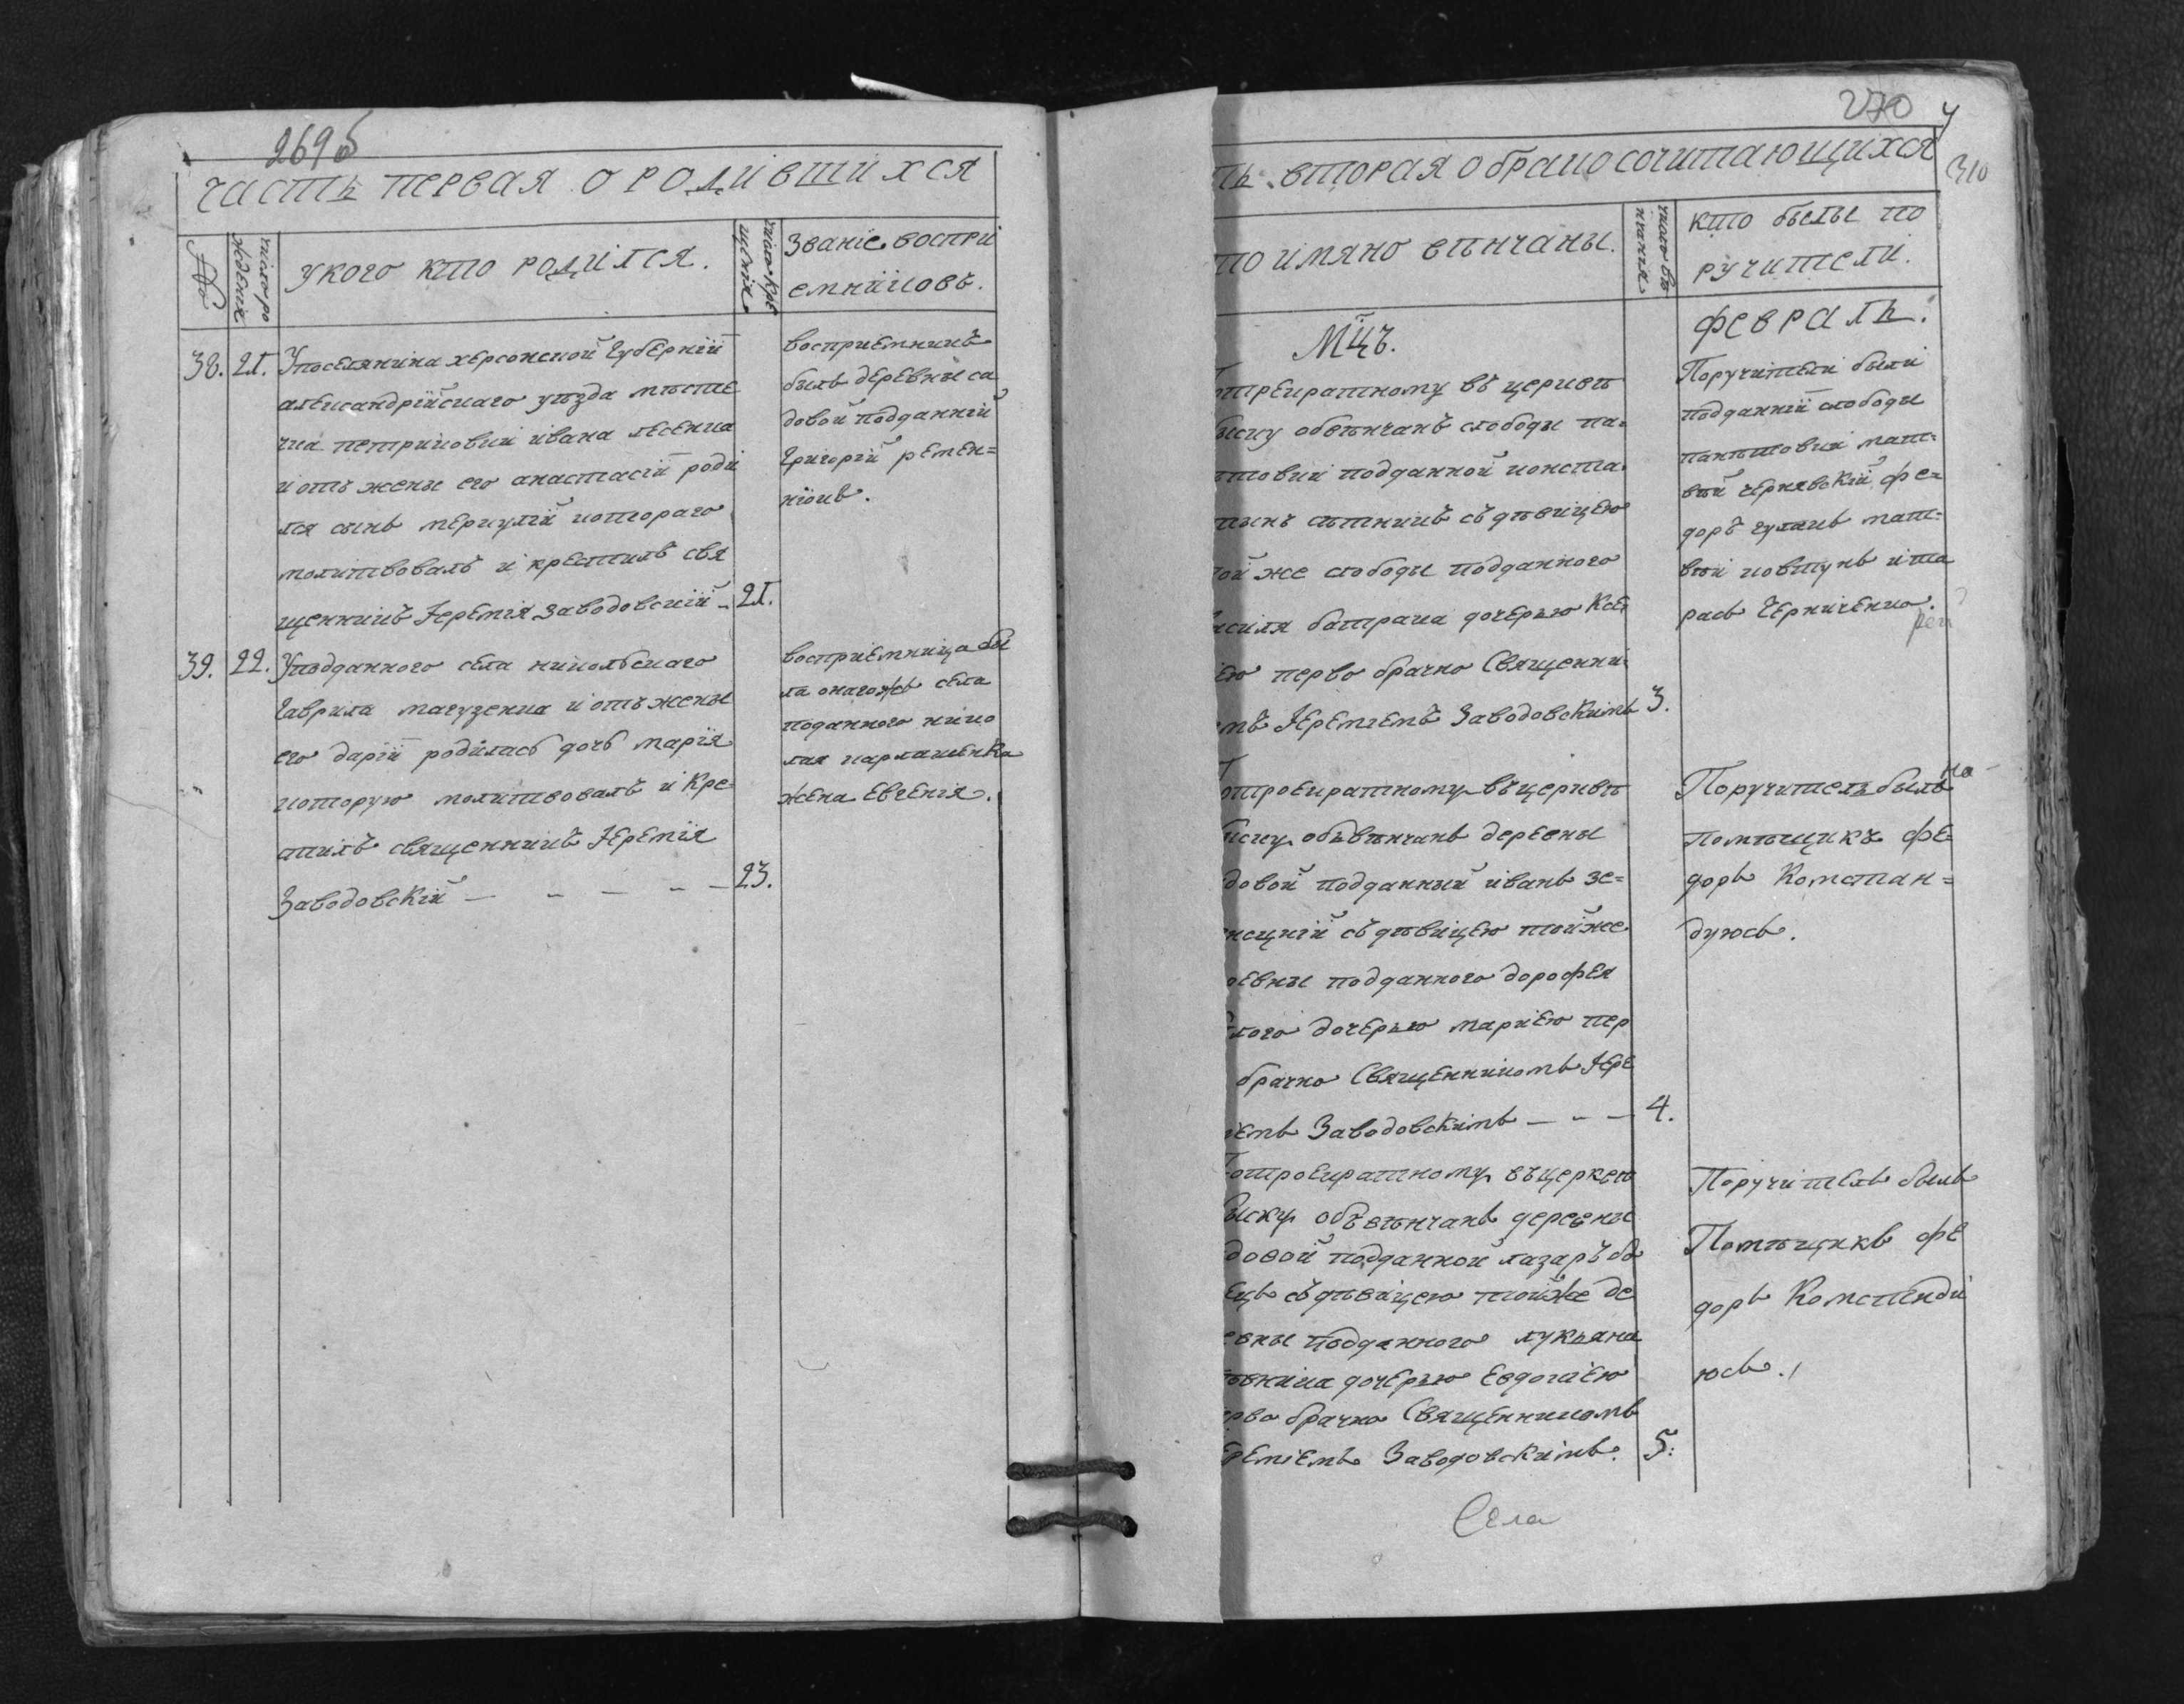 269б
часть первая о родившихся
№
число рождения
у кого кто родился.
число крещения
Званіе восприемниковъ.
38. 21. У поселянина херсонской губерніи
александрійскаго уѣзда мѣстечка
петриковки ивана лесенка
и отъ жены его анастасіи родился
сынъ меркулій котораго
молитвовалъ и крестилъ священникъ
Іеремія Заводовскій 21.
восприемникъ
былъ деревни садовой
подданній
Григорій ременніокъ.
39. 22. У подданного села никольскаго
Гаврила магузенка и отъ жены
его даріи родилась дочь марія
которую молитвовалъ и крестилъ
священникъ Іеремія
Заводовскій — 23.
восприемница была
оногожъ села
поданного николая
карлашенка
жена Евгенія.
270
310
ть вторая о бракосочитающихся
то имяно вѣнчаны.
число вѣнчания
кто былы поручители.
Мцъ. февраль.
отрекратному въ церкви
ыску обвѣнчанъ слободы
товки подданной конста
тынъ ситникъ съ дѣвицею
той же слободы подданного
асиля батрака дочерью Ксе
ею перво брачно Священни
мъ Іереміемъ Заводовскимъ 3.
Поручители были
подданніи слободы
пантовки матвѣй
чернявскій, федоръ
гулакъ матвѣй
ковтунъ и тарасъ
Черниченко.
отроекратному въ церкви
ыску обѣвѣнчанъ деревны
довой подданный иванъ зе=
нецкій съ дѣвицею тойже
ревны подданного дорофея
лого дочерью маріею пер
брачно Священникомъ Іере
іемъ Заводовскимъ — 4.
Поручитель былъ
Помѣщикъ Федоръ
Комстандуюсь.
отроекратному въ церкви
ыску обѣвѣнчанъ деревны
довой подданной лазаръ
ецъ съ дѣвицею тойже де
евны подданного лукьяна
дочерью Евдокіею
рво брачно Священникомъ
ереміемъ Заводовскимъ. 5.
Поручитель былъ
Помѣщикъ Федоръ
Комстендіюсь.
Села